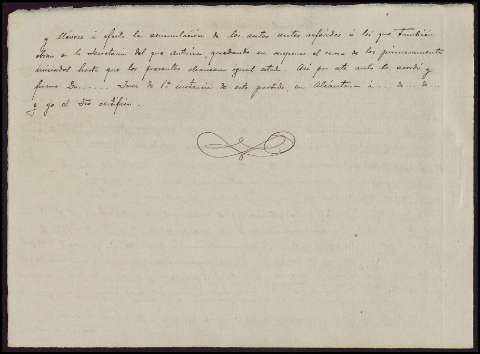 y llévese á efecto la acumulación de los autos antes referidos á los que también
obran en la Secretaría del que autoriza, quedando en suspenso el curso de los primeramente
iniciados hasta que los presentes alcancen igual estado. Así por este auto lo acordó y
firma Dn...... Juez de 1ª instancia de este partido, en Alcántara á... de... de...
y yo el Srio certifico.